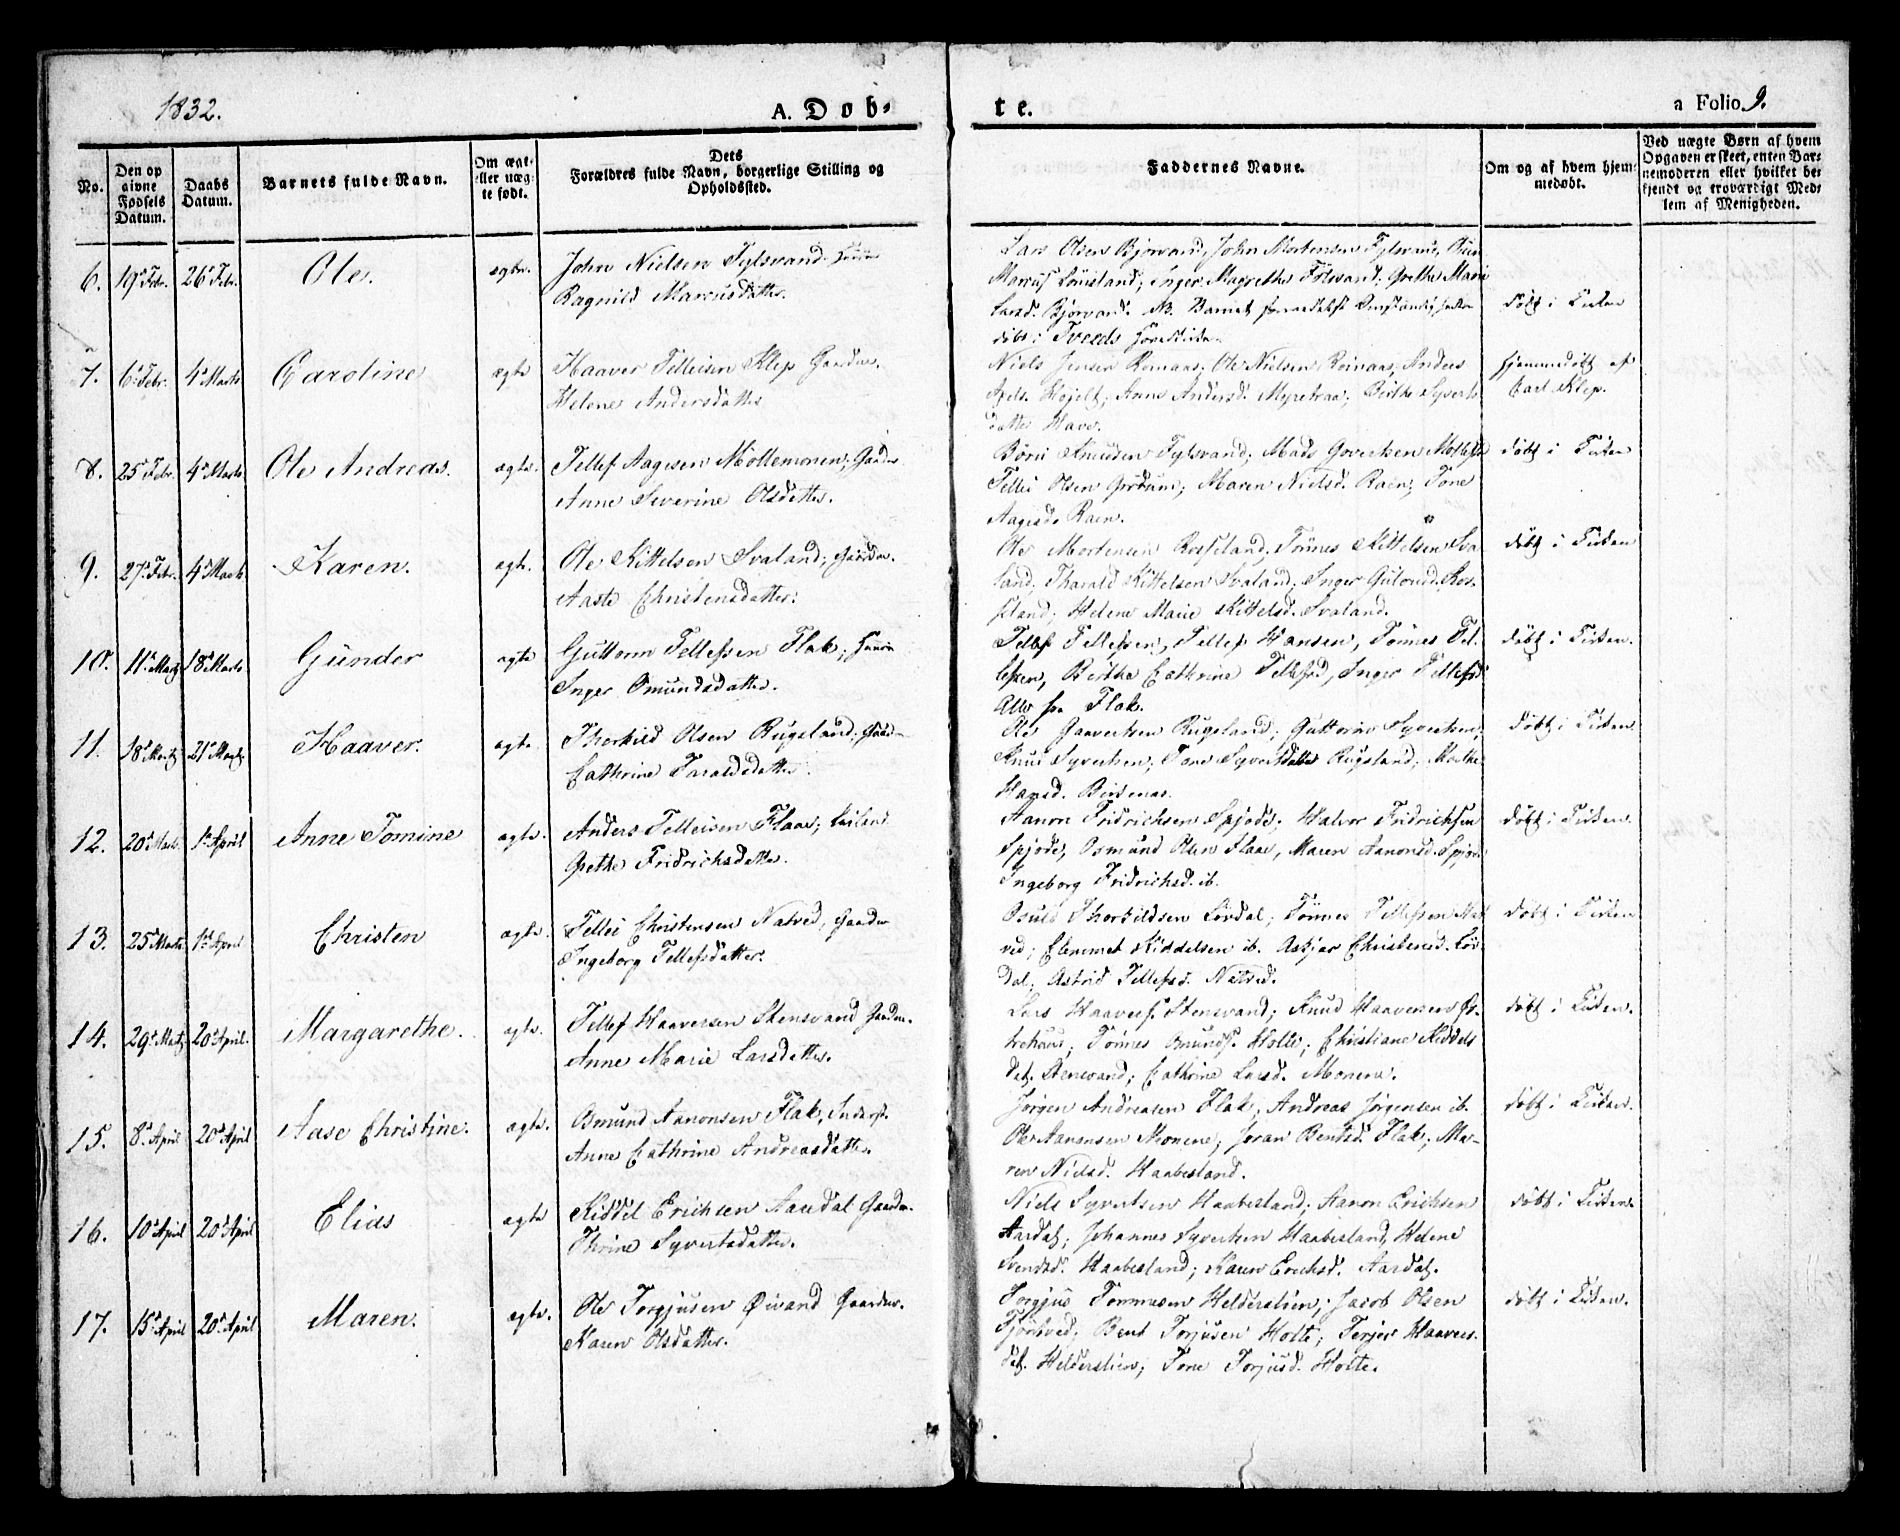 1832.
A. Døb-
te.
a Folio 9.
No.
Den op
givne
Fødsels
Datum.
Daabs
Datum.
Barnets fulde Navn.
Om ægt-
eller uæg-
te født.
Dets
Forældres fulde Navn, borgerlige Stilling og
Opholdssted.
Faddernes Navne.
Om og af hvem hjem-
medøbt.
Ved uægte Børn af hvem
Opgaven er skeet, enten Bar-
nemoderen eller hvilket be-
kjendt og troværdigt Med-
lem af Menigheden.
6. 19de Febr. 26de Febr. Ole. ægte.
John Nielsen Fylsvand
Ragnild Marcusdatter.
Lars Olsen Bjorvand, John Mortensen Fylsvand,
Marcus Lönisland; Inger Magrethe; Grethe Marie
Larsd. Bjorvand. NB. Barnet
døbt i Tveeds
døbt i Kirken
7. 6te Febr. 4de Marts Caroline ægte
Haaver Telleisen Klep Gaardm.
Helene Andersdatter
Niels Jensen Romaas; Ole Nielsen Romaas; Anders
Anne Andersd. Myretraa; Birthe Syverts
datter Have.
hjemmedøbt af
Carl Klep.
8. 25de Febr. 4de Marts Ole Andreas. ægte.
Tellef Aagesen Möllemonen; Gaardm
Anne Severine Olsdatter.
Börü Knudsen Fylsvand; Mads Govertsen
Tellei Olsen; Maren Nielsd. Raen; Tone
Aagesd. Raen.
døbt i Kirken
9. 27de Febr. 4de Marts Karen. ægte.
Ole Kittelsen Svaland; Gaardm.
Aaste Christensdatter.
Ole Mortensen Rosseland; Tönnes Kittelsen Sva-
land; Tharald Kittelsen Svaland; Inger Gulovsd. Ros-
seland; Helene Marie Kittelsd. Svaland.
døbt i Kirken
10. 11te Marts 18de Marts Gunder ægte
Guttorm Tellefsen Flak;
Inger Omundsdatter.
Tellef Tellefsen, Tellef Hansen, Tönnes Tel-
lefsen, Birthe Cathrine Tellefsd, Inger Tellefsd
Alle fra Flak.
døbt i Kirken.
11. 18de Marts 21de Marts Haaver. ægte.
Thorkild Olsen Rugsland;
Cathrine Taraldsdatter.
Ole Gaavertsen Rugsland; Guttorm Syvertsen;
Knud Syvertsen; Tone Syvertsdatter Rugsland; Marthe
Hansd. Birkenes.
døbt i Kirken
12. 20de Marts. 1ste April Anne Tomine ægte.
Anders Telleisen Flaae;
Grethe Fridrichsdatter.
Aanon Fridrichsen Spjode; Halvor Fridrichsen
Spjode, Osmund Olsen Flaae, Maren Aanonsd. Spjode
Ingeborg Fridrichsd. ib.
døbt i Kirken.
13. 25de Marts 1ste April Christen ægte.
Tellei Christensen Natved, Gaardm
Ingeborg Tellefsdatter.
Osuld Thorkildsen Lördal; Tönnes Tellefsen Nat-
ved; Clemmet Kiddelsen ib. Askjer Christensd. Lör-
dal; Astrid Tellefsd. Natved.
døbt i Kirken
14. 29de Marts 20de April. Margarethe. ægte.
Tellef Haaversen Stensvand Gaardm.
Anne Marie Larsdatter.
Lars Haavers. Stensvand; Knud Haaversen
Tönnes Omunds. Holte; Christiane Kiddels
dat. Stensvand; Cathrine Larsd. Monene.
døbt i Kirken.
15. 8de April 20de April Aase Christine. ægte.
Osmund Aanonsen Flak, Inderst.
Anne Cathrine Andreasdatter.
Jörgen Andreasen Flak, Andreas Jörgensen ib.
Ole Aanonsen Monene; Joran Bentsd. Flak; Ma-
ren Nielsd. Haabesland.
døbt i Kirken.
16. 10de April 20de April Elias ægte
Kiddel Erichsen Aardal Gaardm.
Thrine Syvertsdatter.
Niels Syvertsen Haabesland; Aanon Erichsen
Aardal; Johannes Syvertsen Haabesland, Helene
Svendsd. Haabesland; Karen Erichsd. Aardal.
døbt i Kirken.
17. 15de April 20de April Maren. ægte.
Ole Torgjusen Øivand Gaardm.
Karen Olsdatter.
Torgjus Tommesen Helderslien; Jacob Olsen
Bent Torjusen Holte; Terjer Haavers-
dat. Helderslien; Tone Torjusd. Holte.
døbt i Kirken.